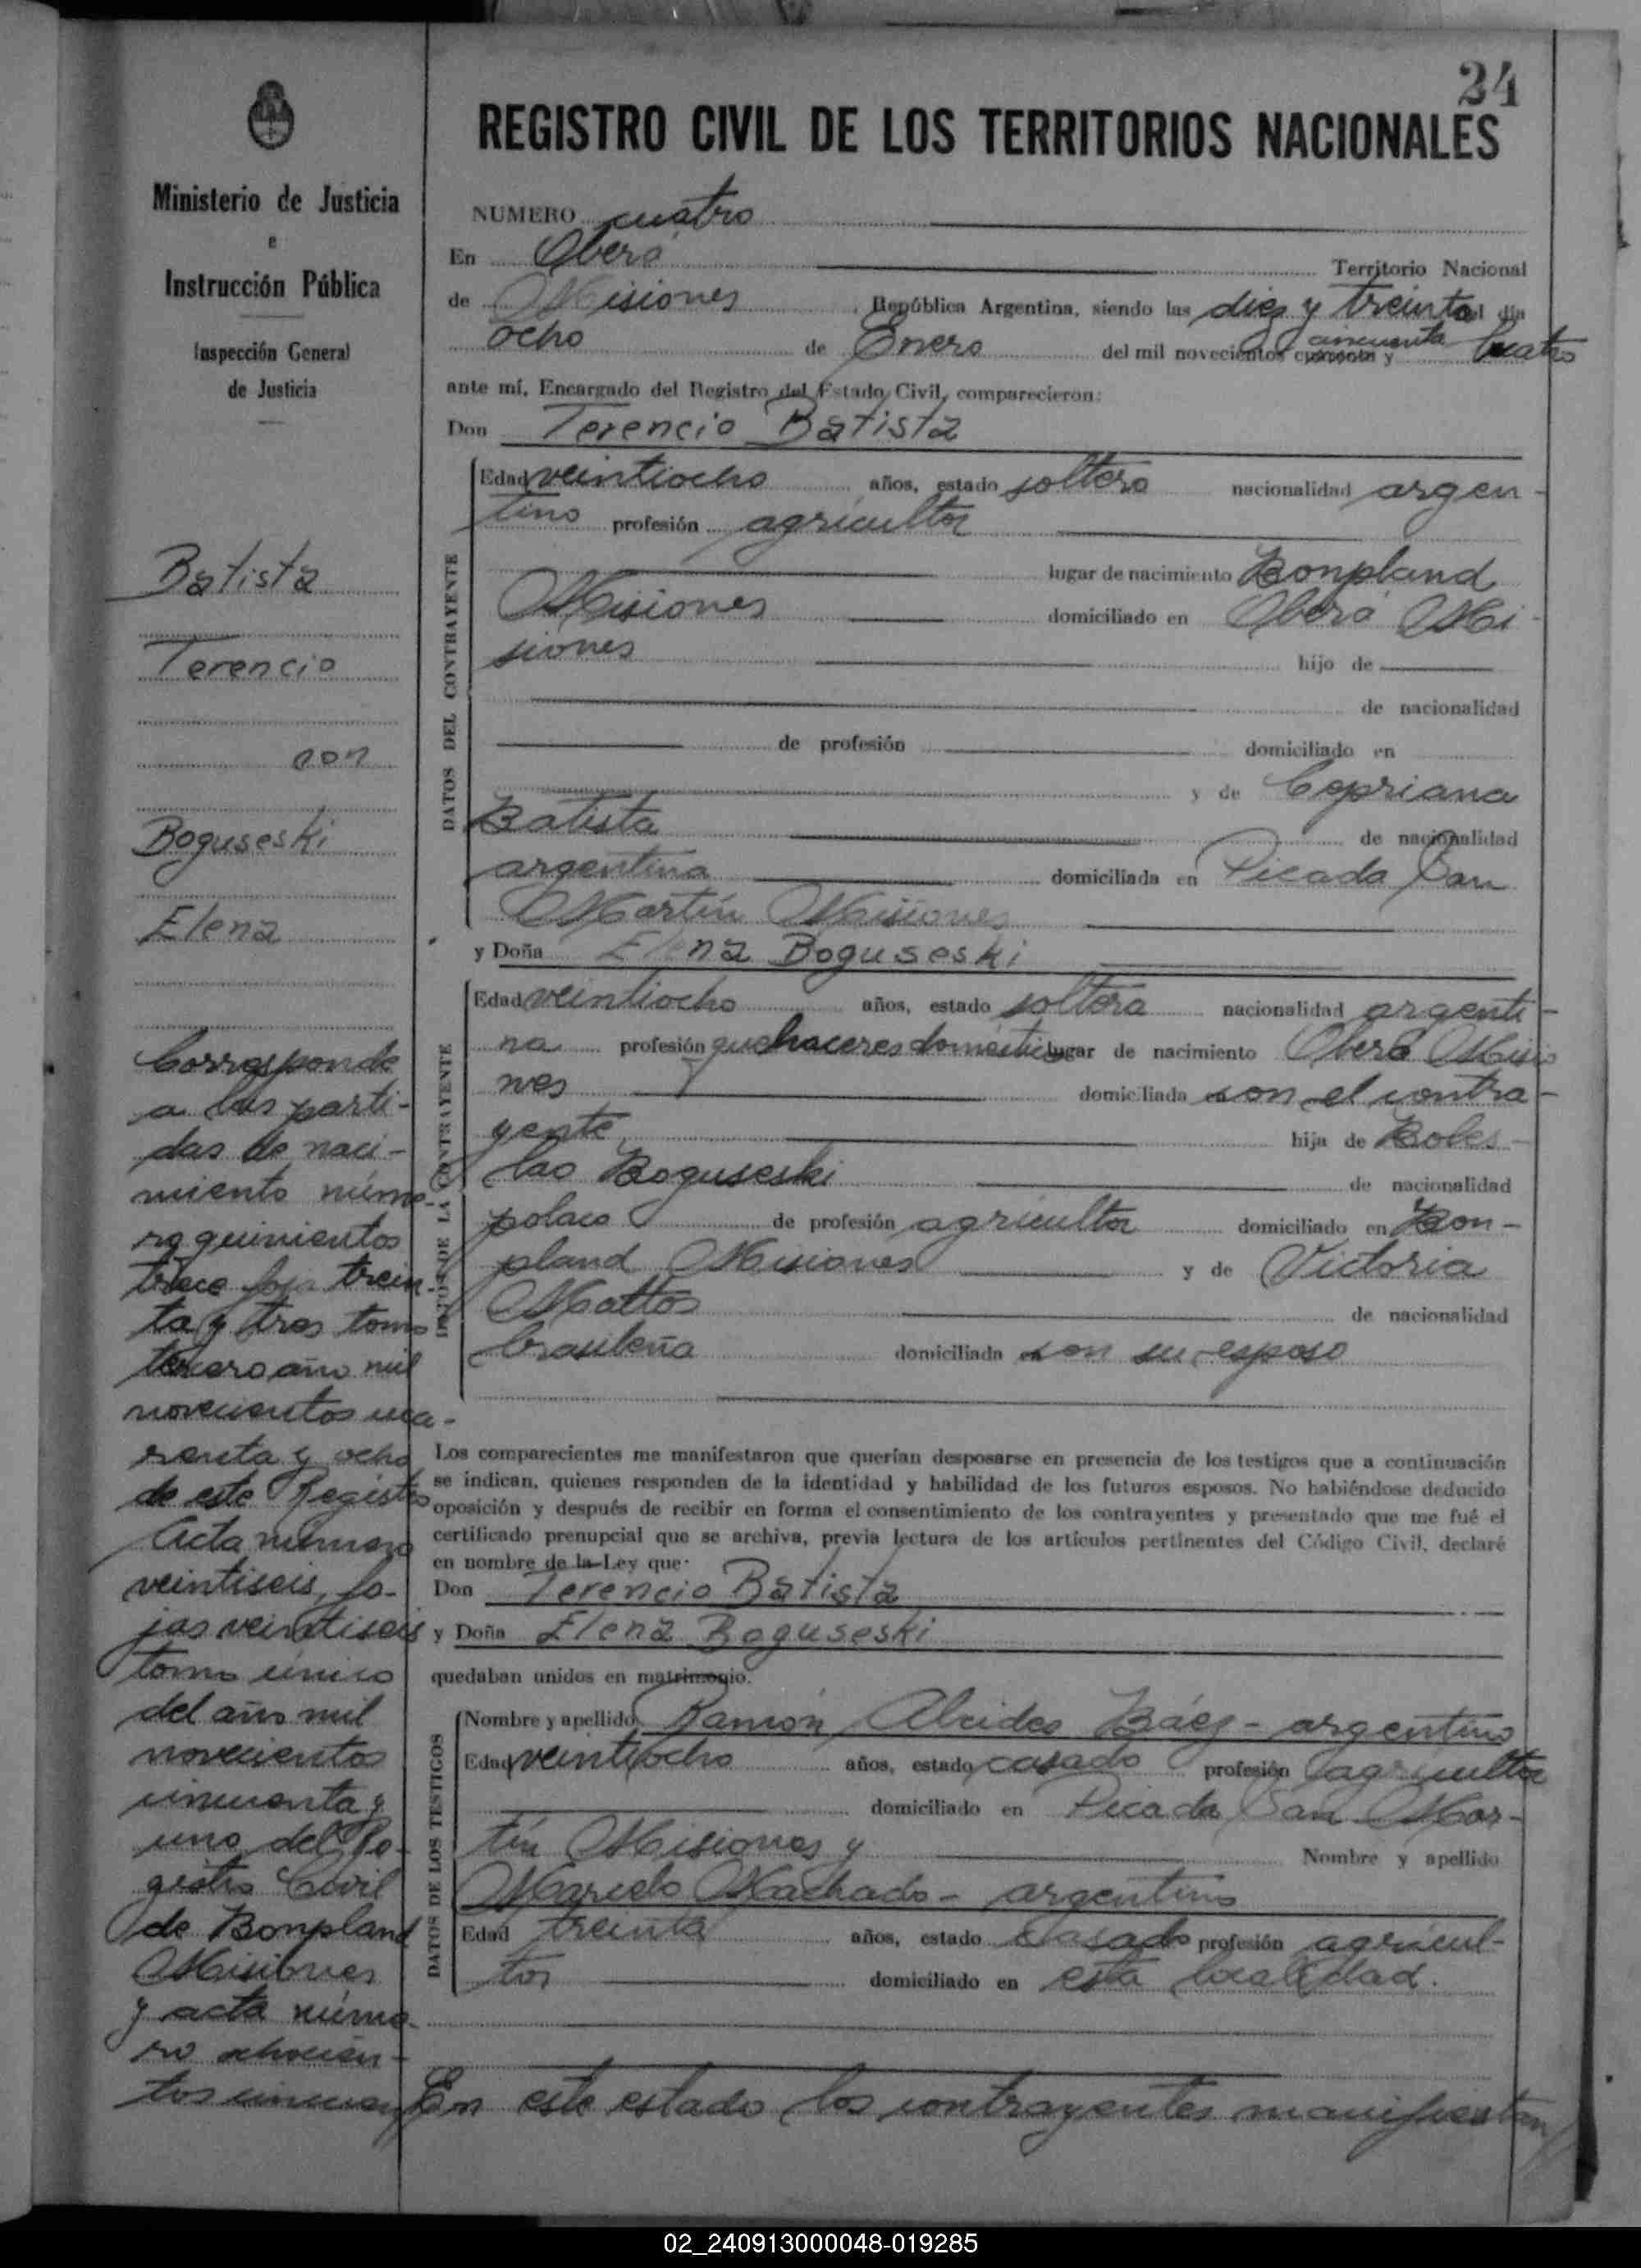 24
REGISTRO CIVIL DE LOS TERRITORIOS NACIONALES
Ministerio de Justicia
e
Instrucción Pública
Inspección General
de Justicia
Batista
Terencio
con
Boguseski
Elena
Corresponde
a las parti-
das de naci-
miento núme-
ro quinientos
trece foja trein-
ta y tres tomo
tercero año mil
novecientos cua-
renta y ocho
de este Registro
Acta número
veintiseis, fo-
jas veintiseis
tomo único
del año mil
novecientos
cincuenta y
uno del Re-
gistro Civil
de Bonpland
Misiones
y acta núme-
ro ochocien-
tos cincuen
NUMERO cuatro
En Oberá Territorio Nacional
de Misiones, República Argentina, siendo las diez y treinta del día
ocho de Enero del mil novecientos cuarenta y cincuenta Cuatro
ante mí, Encargado del Registro del Estado Civil, comparecieron:
Don Terencio Batista
DATOS DEL CONTRAYENTE
Edad veintiocho años, estado soltero nacionalidad argen-
tino profesión agricultor
lugar de nacimiento Bonpland
Misiones domiciliado en Oberá Mi-
siones hijo de
de nacionalidad
de profesión domiciliado en
y de Cipriana
Batista de nacionalidad
argentina domiciliada en Picada San
Martín Misiones
y Doña Elena Boguseski
DATOS DE LA CONTRAYENTE
Edad veintiocho años, estado soltera nacionalidad argenti-
na profesión quehaceres domésticos lugar de nacimiento Oberá Misio
nes domiciliada en con el contra-
yente hija de Boles-
lao Boguseski de nacionalidad
polaco de profesión agricultor domiciliado en Bon-
pland Misiones y de Victoria
Mattos de nacionalidad
brasileña domiciliada en con su esposo
Los comparecientes me manifestaron que querían desposarse en presencia de los testigos que a continuación
se indican, quienes responden de la identidad y habilidad de los futuros esposos. No habiéndose deducido
oposición y después de recibir en forma el consentimiento de los contrayentes y presentado que me fué el
certificado prenupcial que se archiva, previa lectura de los artículos pertinentes del Código Civil, declaré
en nombre de la Ley que:
Don Terencio Batista
y Doña Elena Boguseski
quedaban unidos en matrimonio.
DATOS DE LOS TESTIGOS
Nombre y apellido Ramón Alcides Báez - argentino
Edad veintiocho años, estado casado profesión agricultor
domiciliado en Picada San Mar-
tín Misiones y Nombre y apellido
Marcelo Machado - argentino
Edad treinta años, estado casado profesión agricul-
tor domiciliado en esta localidad.
En este estado los contrayentes manifiestan
02_240913000048-019285